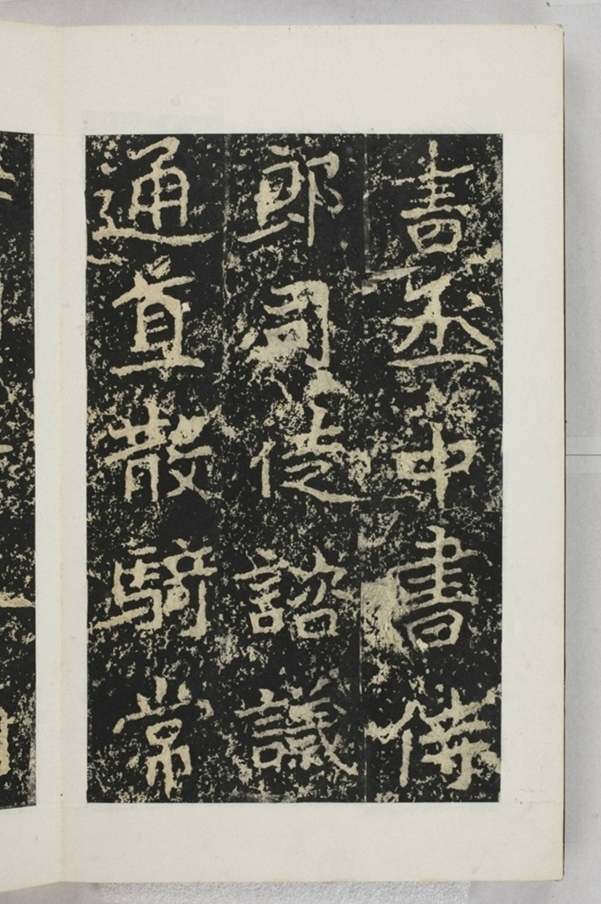 書丞中書侍
郎司徒諮議
通直散騎常